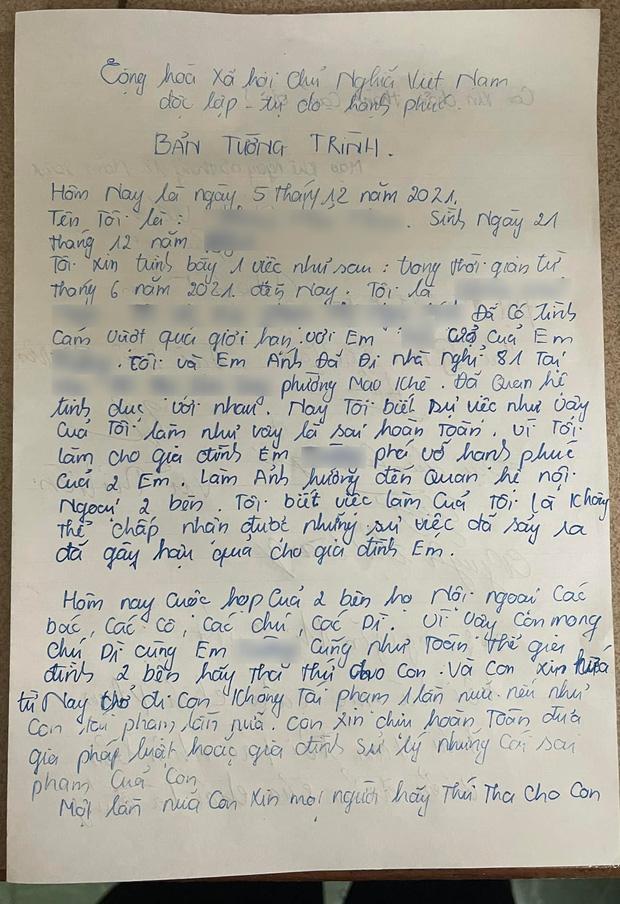 Cộng hoà Xã hội chủ Nghĩa Việt Nam
độc lập - tự do - hạnh phúc.
BẢN TƯỜNG TRÌNH.
Hôm Nay là ngày 5 tháng 12 năm 2021.
Tên Tôi là : . Sinh Ngày 21
tháng 12 năm
Tôi xin trình bầy 1 việc như sau : trong thời gian từ
tháng 6 năm 2021. đến Nay. Tôi là
Đã có tình
cảm vượt quá giới hạn với Em của Em
. tôi và Em Ánh Đã Đi nhà nghỉ 81 Tại
phường Mạo Khê. Đã Quan hệ
tình dục với nhau. Nay Tôi biết sự việc như vậy
Của Tôi làm như vậy là sai hoàn Toàn. vì Tôi
làm cho gia đình Em phá vỡ hạnh phúc
Của 2 Em. Làm Ảnh hưởng đến Quan hệ nội
Ngoại 2 bên. Tôi biết việc làm Của Tôi là Không
Thể chấp nhận được nhưng sự việc đã sảy ra
đã gây hậu quả cho gia đình Em.
Hôm nay Cuộc họp Của 2 bên họ Nội ngoại Các
bác, Các cô, Các chú, Các Dì. Vì vậy Con mong
chú Dì cùng Em Cũng như Toàn Thể gia
đình 2 bên hãy Tha thứ cho Con. Và Con xin hứa
từ Nay trở đi Con Không Tái phạm 1 lần nữa. nếu như
Con tái phạm lần nữa. Con xin chịu hoàn Toàn đưa
gia pháp luật hoặc gia đình sử lý những Cái sai
phạm Của Con
Một lần nữa Con xin mọi người hãy Thứ Tha Cho Con